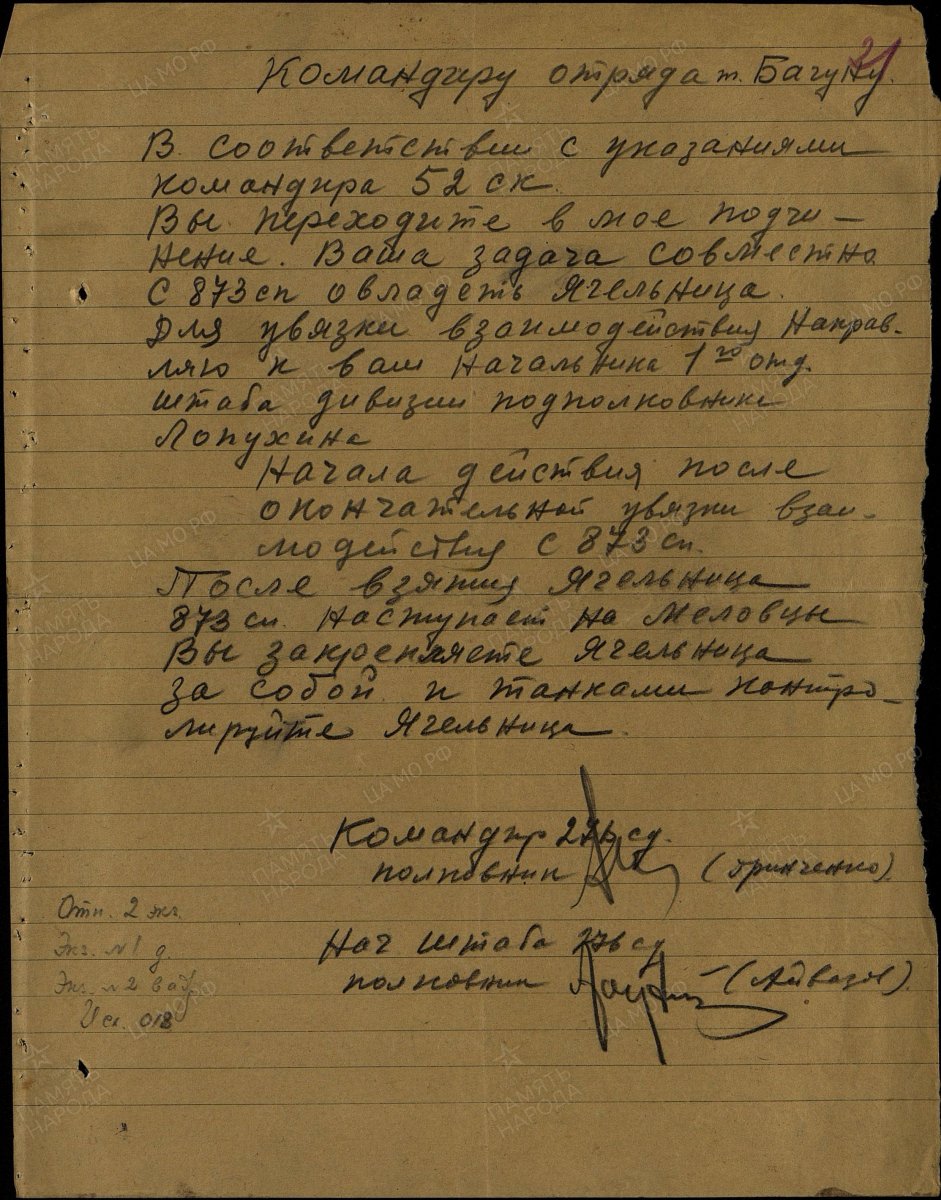 21
Командиру отряда т. Бачуну.
В соответствии с указаниями
командира 52 ск.
Вы переходите в мое подчи-
нение. Ваша задача совместно
с 873 сп овладеть Ячельница.
Для увязки взаимодействия направ-
ляю к вам Начальника 1го отд.
штаба дивизии подполковника
Лопухина
Начало действия после
окончательной увязки взаи-
модействия с 873 сп.
После взятия Ячельница
873 сп. наступает на Меловцы
Вы закрепляете Ячельница
за собой и танками контро-
лируйте Ячельница.
Командир 276 сд.
полковник (Гринченко).
Нач штаба 276 сд
полковник (Айвазов).
Отп. 2 экз.
Экз. №1 д
Экз. №2 в ад
ЦА МО РФ
ПАМЯТЬ НАРОДА